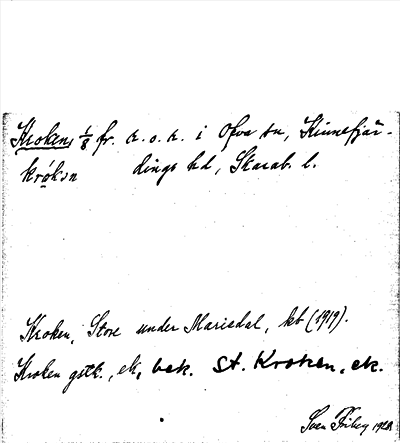 Kroken, 1/8 fr. h. o. h. i Ova sn, Kinnefjär-
krọ́kən dings hd, Skarab. l.
Kroken, Stora under Mariedal, kb (1919).
Kroken gstk., ek, bek. St. Kroken, ek.
Sven Friberg